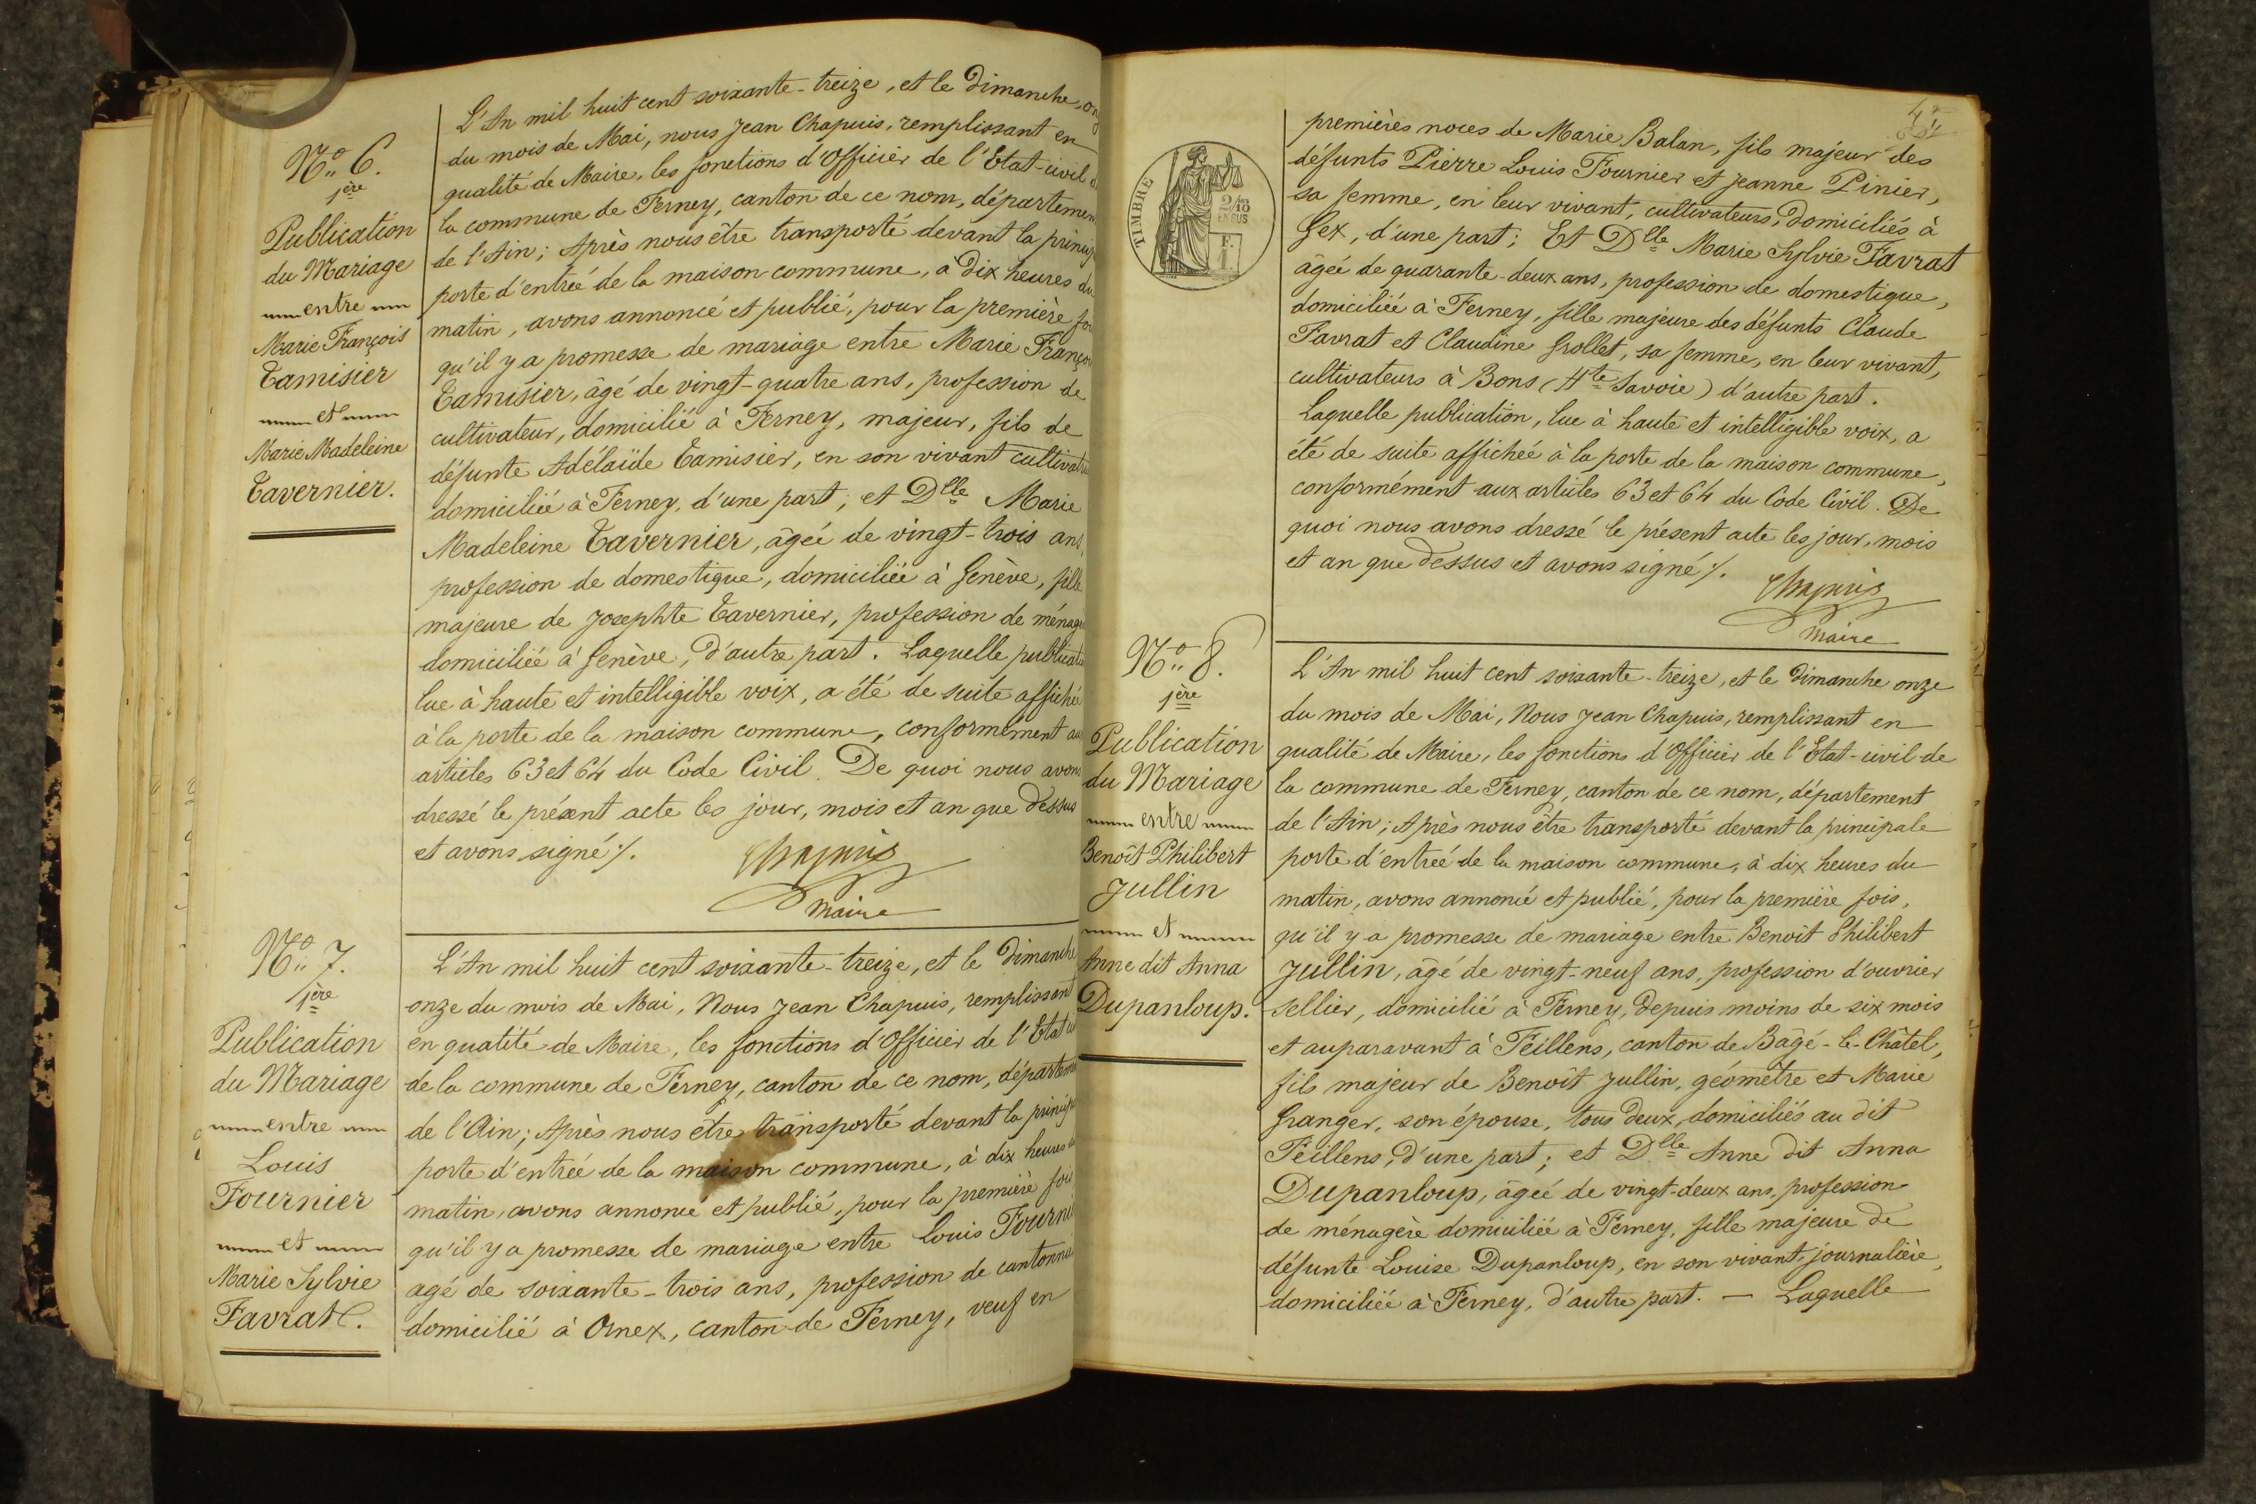 N° 6.
1ère
Publication
du Mariage
entre
Marie François
Tamisier
et
Marie Madeleine
Tavernier.
L'An mil huit cent soixante-treize, et le Dimanche, onz
du mois de Mai, nous Jean Chapuis, remplissant en
qualité de Maire, les fonctions d'Officier de l'Etat-civil d
la commune de Ferney, canton de ce nom, départemen
de l'Ain; Après nous être transporté devant la princip
porte d'entrée de la maison commune, à Dix heures du
matin, avons annoncé et publié, pour la première foi
qu'il y a promesse de mariage entre Marie Françoi
Tamisier, âgé de vingt-quatre ans, profession de
cultivateur, domicilié à Ferney, majeur, fils de
défunte Adélaïde Tamisier, en son vivant cultivatri
domiciliée à Ferney, d'une part; et Dlle Marie
Madeleine Tavernier, âgée de vingt-trois ans,
profession de domestique, domiciliée à Genève, fille
majeure de Josephte Tavernier, profession de ménag
domiciliée à Genève, d'autre part. Laquelle publicati
lue à haute et intelligible voix, a été de suite affichée
à la porte de la maison commune, conformément au
articles 63 et 64 du Code Civil. De quoi nous avons
dressé le présent acte les jour, mois et an que dessus
et avons signé ./.
Chapuis
Maire
N° 7.
1ère
Publication
du Mariage
entre
Louis
Fournier
et
Marie Sylvie
Favrat.
L'An mil huit cent soixante-treize, et le Dimanche
onze du mois de Mai, Nous Jean Chapuis, remplissant
en qualité de Maire, les fonctions d'Officier de l'Etat ci
de la commune de Ferney, canton de ce nom, départeme
de l'Ain; Après nous être transporté devant la princip
porte d'entrée de la maison commune, à dix heures du
matin, avons annoncé et publié, pour la première fois
qu'il y a promesse de mariage entre Louis Fourni
agé de soixante-trois ans, profession de cantonnie
domicilié à Ornex, canton de Ferney, veuf en
TIMBRE
2/10
EN SUS
premières noces de Marie Balan, fils majeur des
défunts Pierre Louis Fournier et Jeanne Pinier,
sa femme, en leur vivant, cultivateurs, Domiciliés à
Gex, d'une part; Et Dlle Marie Sylvie Favrat
âgée de quarante-deux ans, profession de domestique,
domiciliée à Ferney, fille majeure des défunts Claude
Favrat et Claudine Grollet, sa femme, en leur vivant,
cultivateurs à Bons (Hte Savoie) d'autre part.
Laquelle publication, lue à haute et intelligible voix, a
été de suite affichée à la porte de la maison commune,
conformément aux articles 63 et 64 du Code Civil. De
quoi nous avons dressé le présent acte les jour, mois
et an que dessus et avons signé ./.
Chapuis
Maire
N° 8.
1ère
Publication
du Mariage
entre
Benoît Philibert
Jullin
et
Anne dit Anna
Dupanloup.
L'An mil huit cent soixante-treize, et le Dimanche onze
du mois de Mai, Nous Jean Chapuis, remplissant en
qualité de Maire, les fonctions d'Officier de l'Etat-civil de
la commune de Ferney, canton de ce nom, département
de l'Ain; Après nous être transporté devant la principale
porte d'entrée de la maison commune, à dix heures du
matin, avons annoncé et publié, pour la première fois,
qu'il y a promesse de mariage entre Benoît Philibert
Jullin, âgé de vingt-neuf ans, profession d'ouvrier
sellier, domicilié à Ferney, Depuis moins de six mois
et auparavant à Feillens, canton de Bâgé-le-Châtel,
fils majeur de Benoît Jullin, géomètre et Marie
Granger, son épouse, tous deux domiciliés au dit
Feillens, d'une part; et Dlle Anne dit Anna
Dupanloup, âgée de vingt-deux ans, profession
de ménagère domiciliée à Ferney, fille majeure de
défunte Louise Dupanloup, en son vivant journalière,
domiciliée à Ferney, d'autre part. — Laquelle